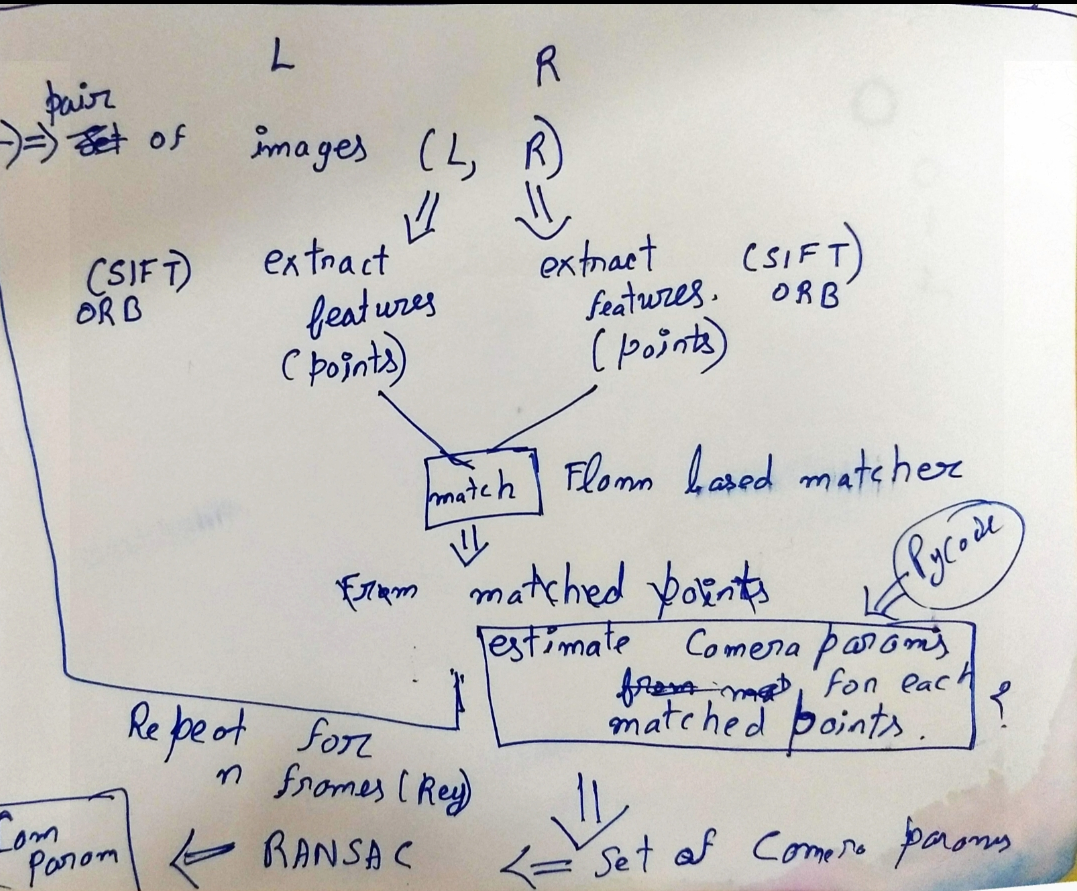 L R
pair
=> of images (L, R)
(SIFT) extract extract (SIFT)
ORB features features. ORB
(points) (points)
match Flann based matcher
PyCode
From matched points
estimate Camera params
for each
matched points. ?
Repeat for
n frames (Key)
Cam
Param <= RANSAC <= Set of Camera params